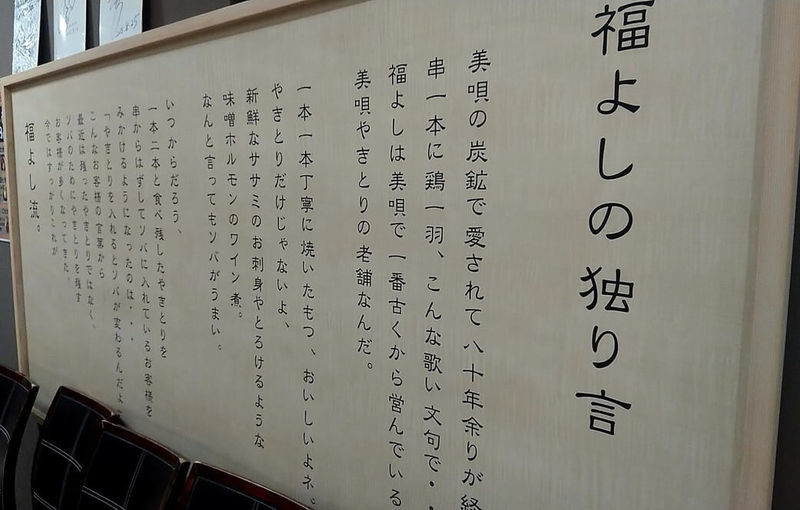 福よしの独り言
美唄の炭鉱で愛されて八十年余りが経
串一本に鶏一羽、こんな歌い文句で・・
福よしは美唄で一番古くから営んでいる
美唄やきとりの老舗なんだ。
一本一本丁寧に焼いたもつ、おいしいよネ。
やきとりだけじゃないよ、
新鮮なササミのお刺身やとろけるような
味噌ホルモンのワイン煮。
なんと言ってもソバがうまい。
いつからだろう、
一本二本と食べ残したやきとりを
串からはずしてソバに入れているお客様を
みかけるようになったのは・・
「やきとりを入れるとソバが変わるんだよ
こんなお客様の言葉から
最近は残ったやきとりではなく、
ソバのためにやきとりを残す
お客様が多くなってきた。
今ではすっかりこれが
福よし流。